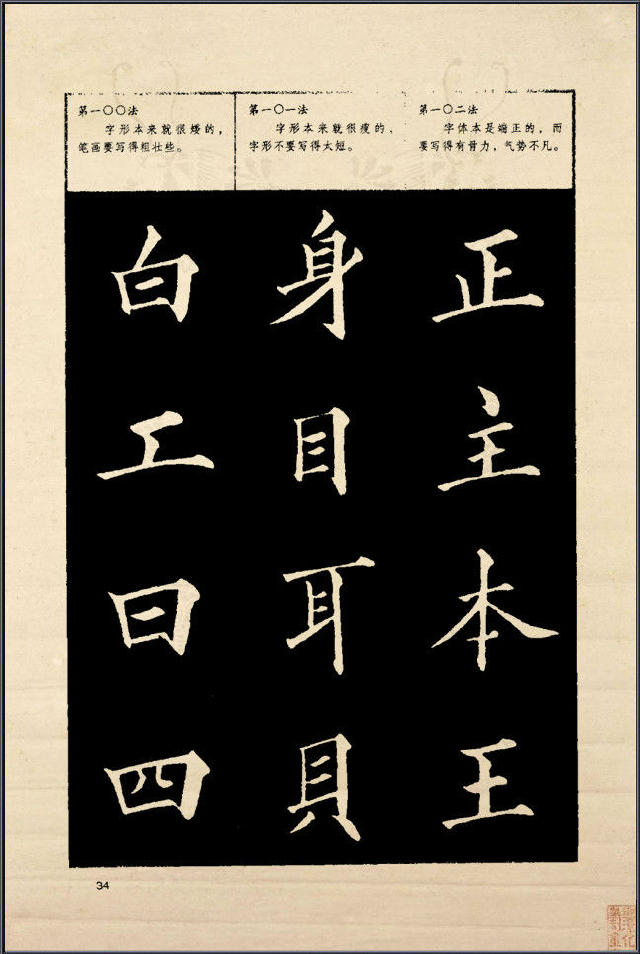 第一〇〇法
字形本来就很矮的，
笔画要写得粗壮些。
第一〇一法
字形本来就很瘦的，
字形不要写得太短。
第一〇二法
字体本是端正的，而
要写得有骨力，气势不凡。
正
主
本
王
身
目
耳
貝
白
工
曰
四
34